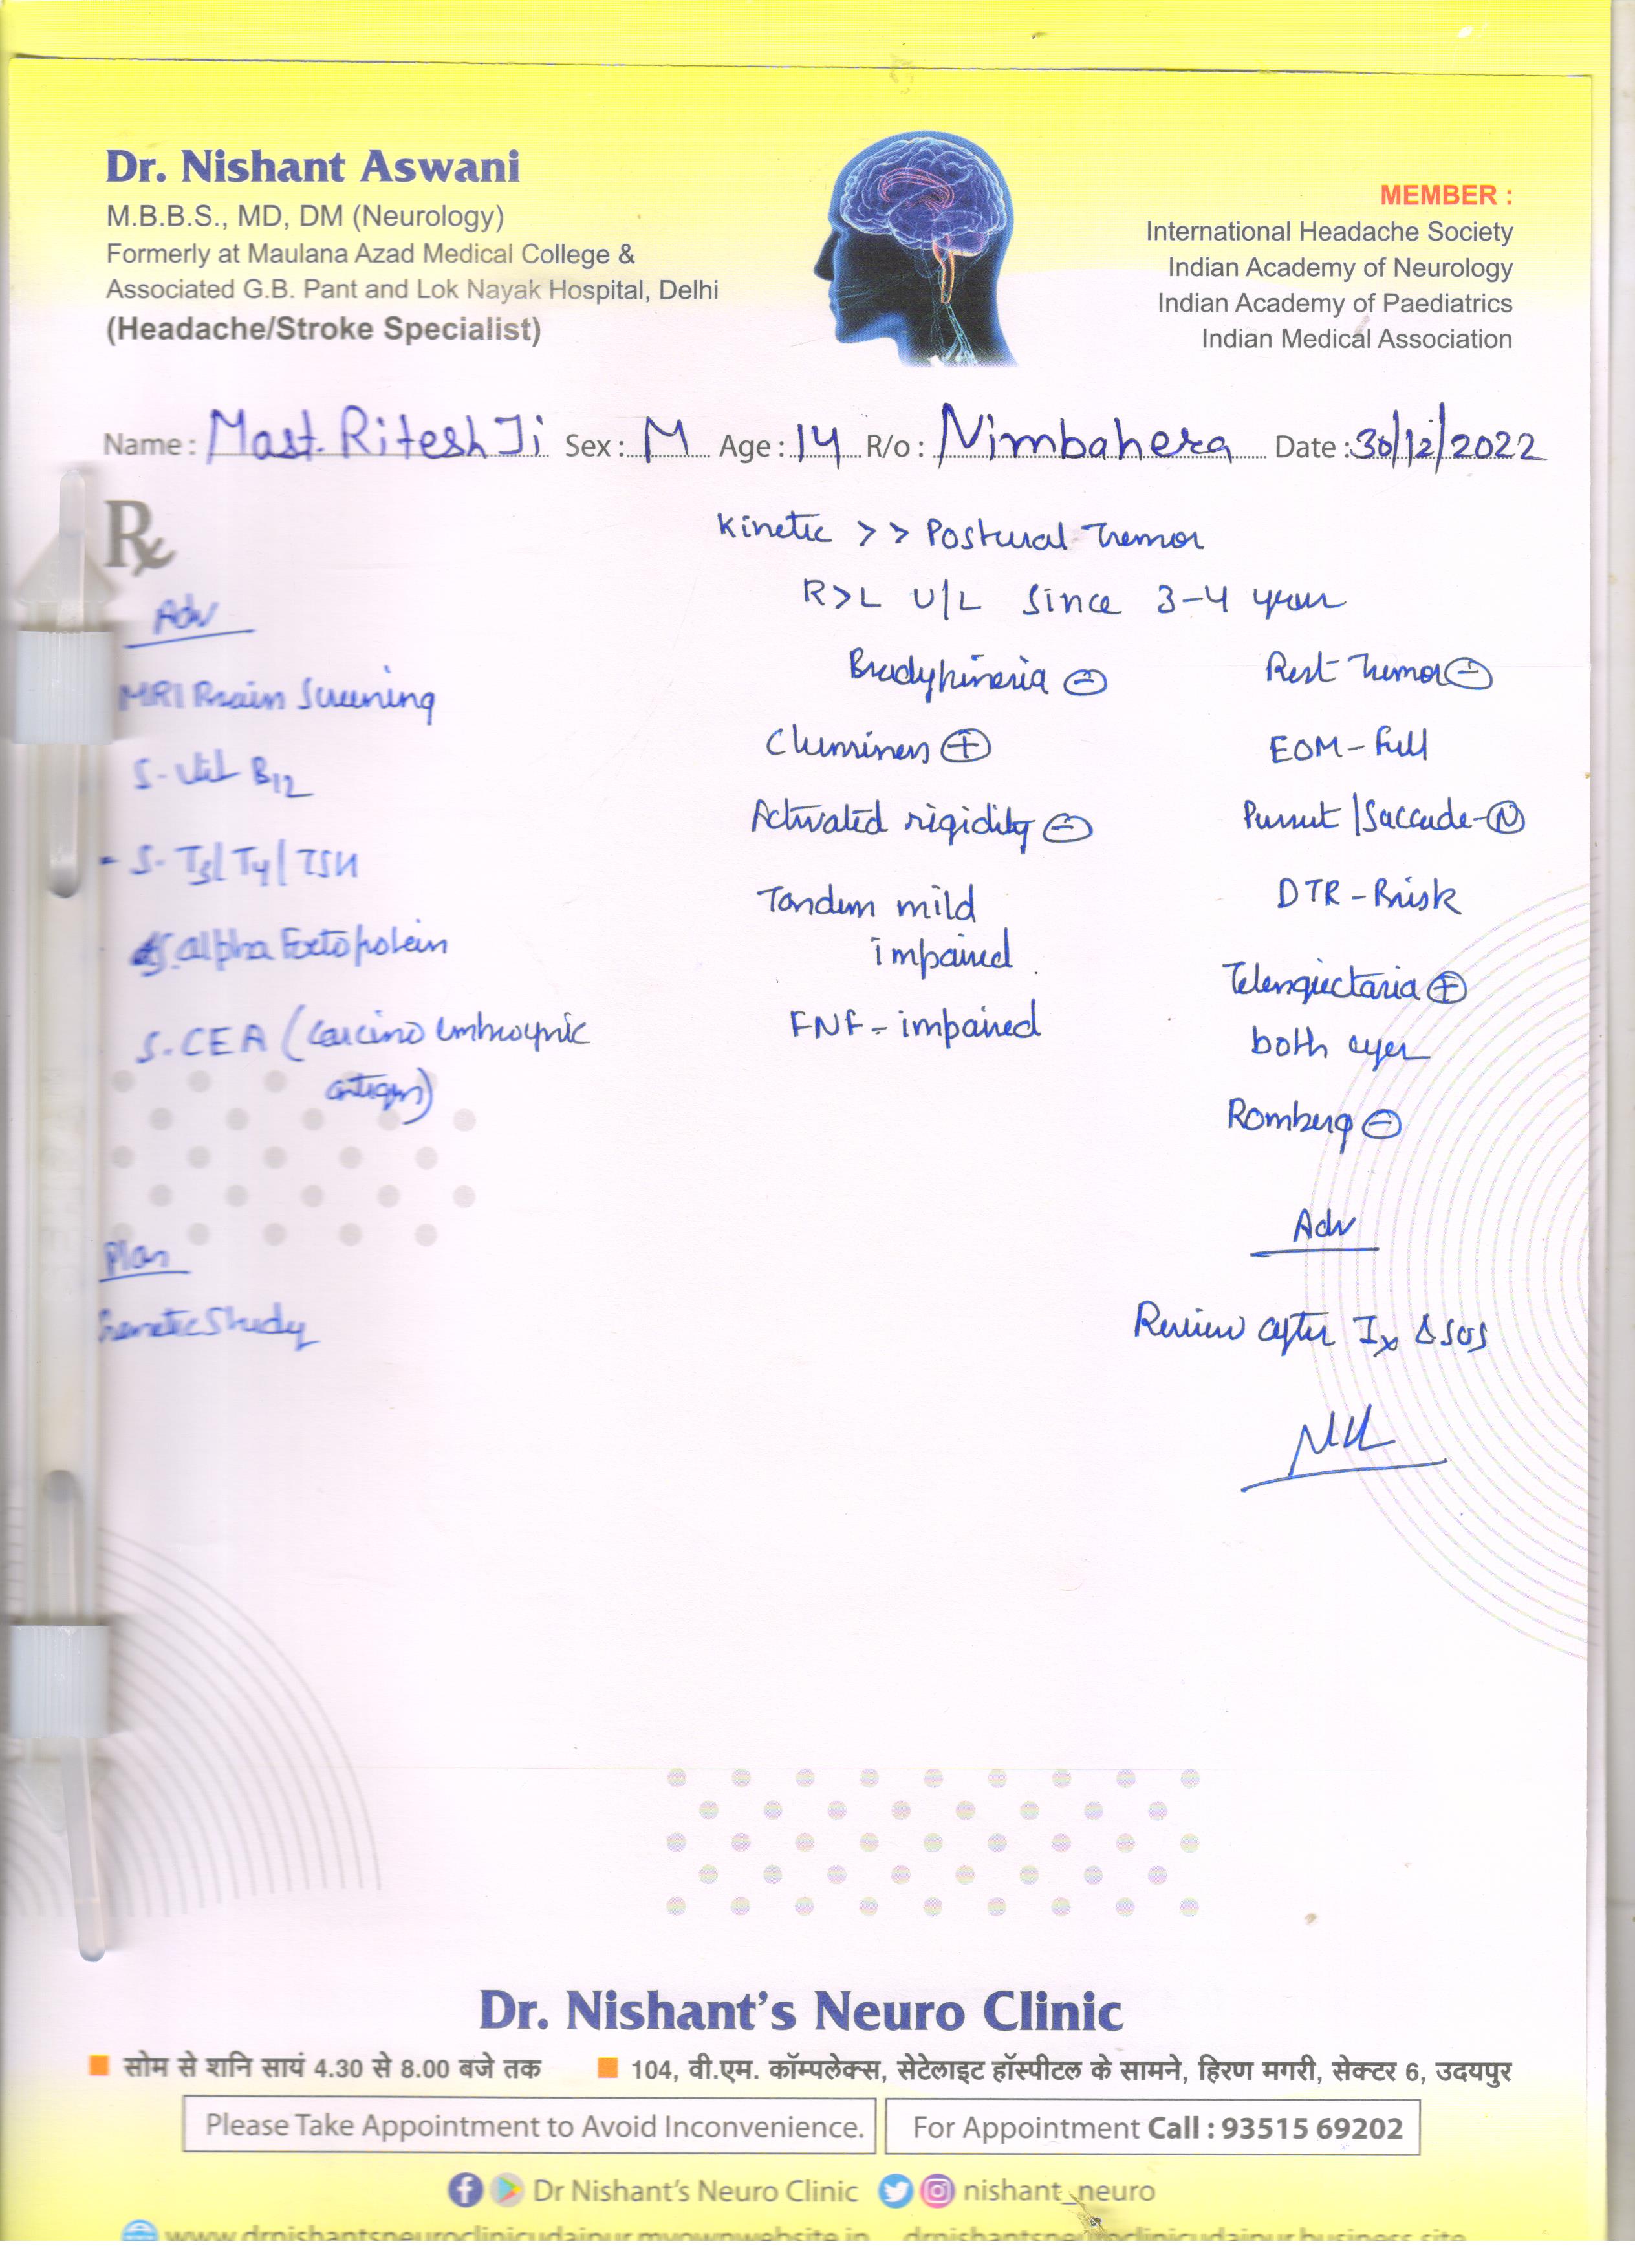 Dr. Nishant Aswani
M.B.B.S., MD, DM (Neurology)
Formerly at Maulana Azad Medical College &
Associated G.B. Pant and Lok Nayak Hospital, Delhi
(Headache/Stroke Specialist)
MEMBER :
International Headache Society
Indian Academy of Neurology
Indian Academy of Paediatrics
Indian Medical Association
Name : Mast. Ritesh Ji Sex : M Age : 14 R/o : Nimbahera Date : 30/12/2022
Rx
Adv
MRI Brain Screening
S. Vit B12
- S. T3/T4/TSH
S. alpha Foetoprotein
S. CEA (Carcino embroynic
antigen)
Plan
Genetic Study
Kinetic >> Postural Tremor
R>L U/L Since 3-4 year
Bradykinesia ⊖
Clumsiness ⊕
Activated rigidity ⊖
Tandem mild
impaired
FNF - impaired
Rest Tremor ⊖
EOM - Full
Pursuit/Saccade - Ⓝ
DTR - Brisk
Telengiectasia ⊕
both eyes
Romberg ⊖
Adv
Review after Ix & SOS
Dr. Nishant's Neuro Clinic
सोम से शनि सायं 4.30 से 8.00 बजे तक
104, वी.एम. कॉम्पलेक्स, सेटेलाइट हॉस्पीटल के सामने, हिरण मगरी, सेक्टर 6, उदयपुर
Please Take Appointment to Avoid Inconvenience.
For Appointment Call : 93515 69202
Dr Nishant's Neuro Clinic
nishant_neuro
www.drnishantsneuroclinicudaipur.myownwebsite.in
drnishantsneuroclinicudaipur.business.site